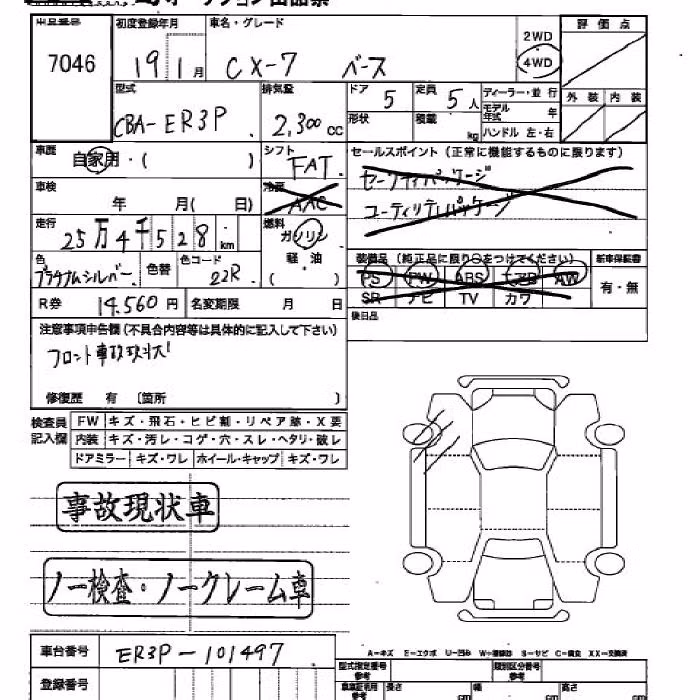 オークション出品票
出品番号 初度登録年月 車名・グレード 2WD 評価点
7046 19 1月 CX-7 ベース 4WD
型式 排気量 ドア 定員 ディーラー・並行 外装 内装
CBA-ER3P 2,300cc 5 5人 モデル年式 年
形状 積載 kg ハンドル 左・右
車歴 自家用・( ) シフト FAT セールスポイント (正常に機能するものに限ります)
冷房 AAC セーフティパッケージ
車検 年 月( 日) ユーティリティパッケージ
走行 25万4千528km 燃料 ガソリン
軽油
( )
色 プラチナムシルバー 色替 色コード 22R 装備品 (純正品に限り○をつけてください) 新車保証書
PS PW ABS エアB AW 有・無
R券 14,560円 名変期限 月 日 SR ナビ TV カワ
後日品
注意事項申告欄 (不具合内容等は具体的に記入して下さい)
フロント事故現状
修復歴 有 〔箇所 〕
検査員記入欄 FW キズ・飛石・ヒビ割・リペア跡・X要
内装 キズ・汚レ・コゲ・穴・スレ・ヘタリ・破レ
ドアミラー キズ・ワレ ホイール・キャップ キズ・ワレ
事故現状車
ノー検査・ノークレーム車
A−キズ E−エクボ U−凹み W−補修跡 S−サビ C−腐食 XX−交換済
車台番号 ER3P-101497
型式指定番号 参考 類別区分番号 参考
登録番号
長さ cm 幅 cm 高さ cm